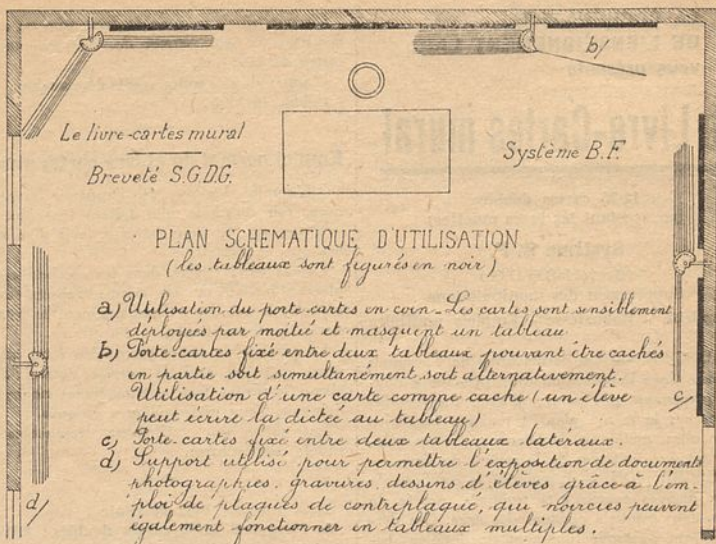 b/
Le livre-cartes mural
Breveté S.G.D.G.
Système B.F.
PLAN SCHEMATIQUE D'UTILISATION
(les tableaux sont figurés en noir)
a) Utilisation du porte-cartes en coin - Les cartes sont sensiblement
déployées par moitié et masquent un tableau
b) Porte-cartes fixé entre deux tableaux pouvant être cachés
en partie soit simultanément soit alternativement.
Utilisation d'une carte comme cache (un élève
peut écrire la dictée au tableau)
c) Porte-cartes fixé entre deux tableaux latéraux.
d) Support utilisé pour permettre l'exposition de documents
photographies, gravures, dessins d'élèves grâce à l'em-
ploi de plaques de contreplaqué, qui noircies peuvent
également fonctionner en tableaux multiples.
c/
d/